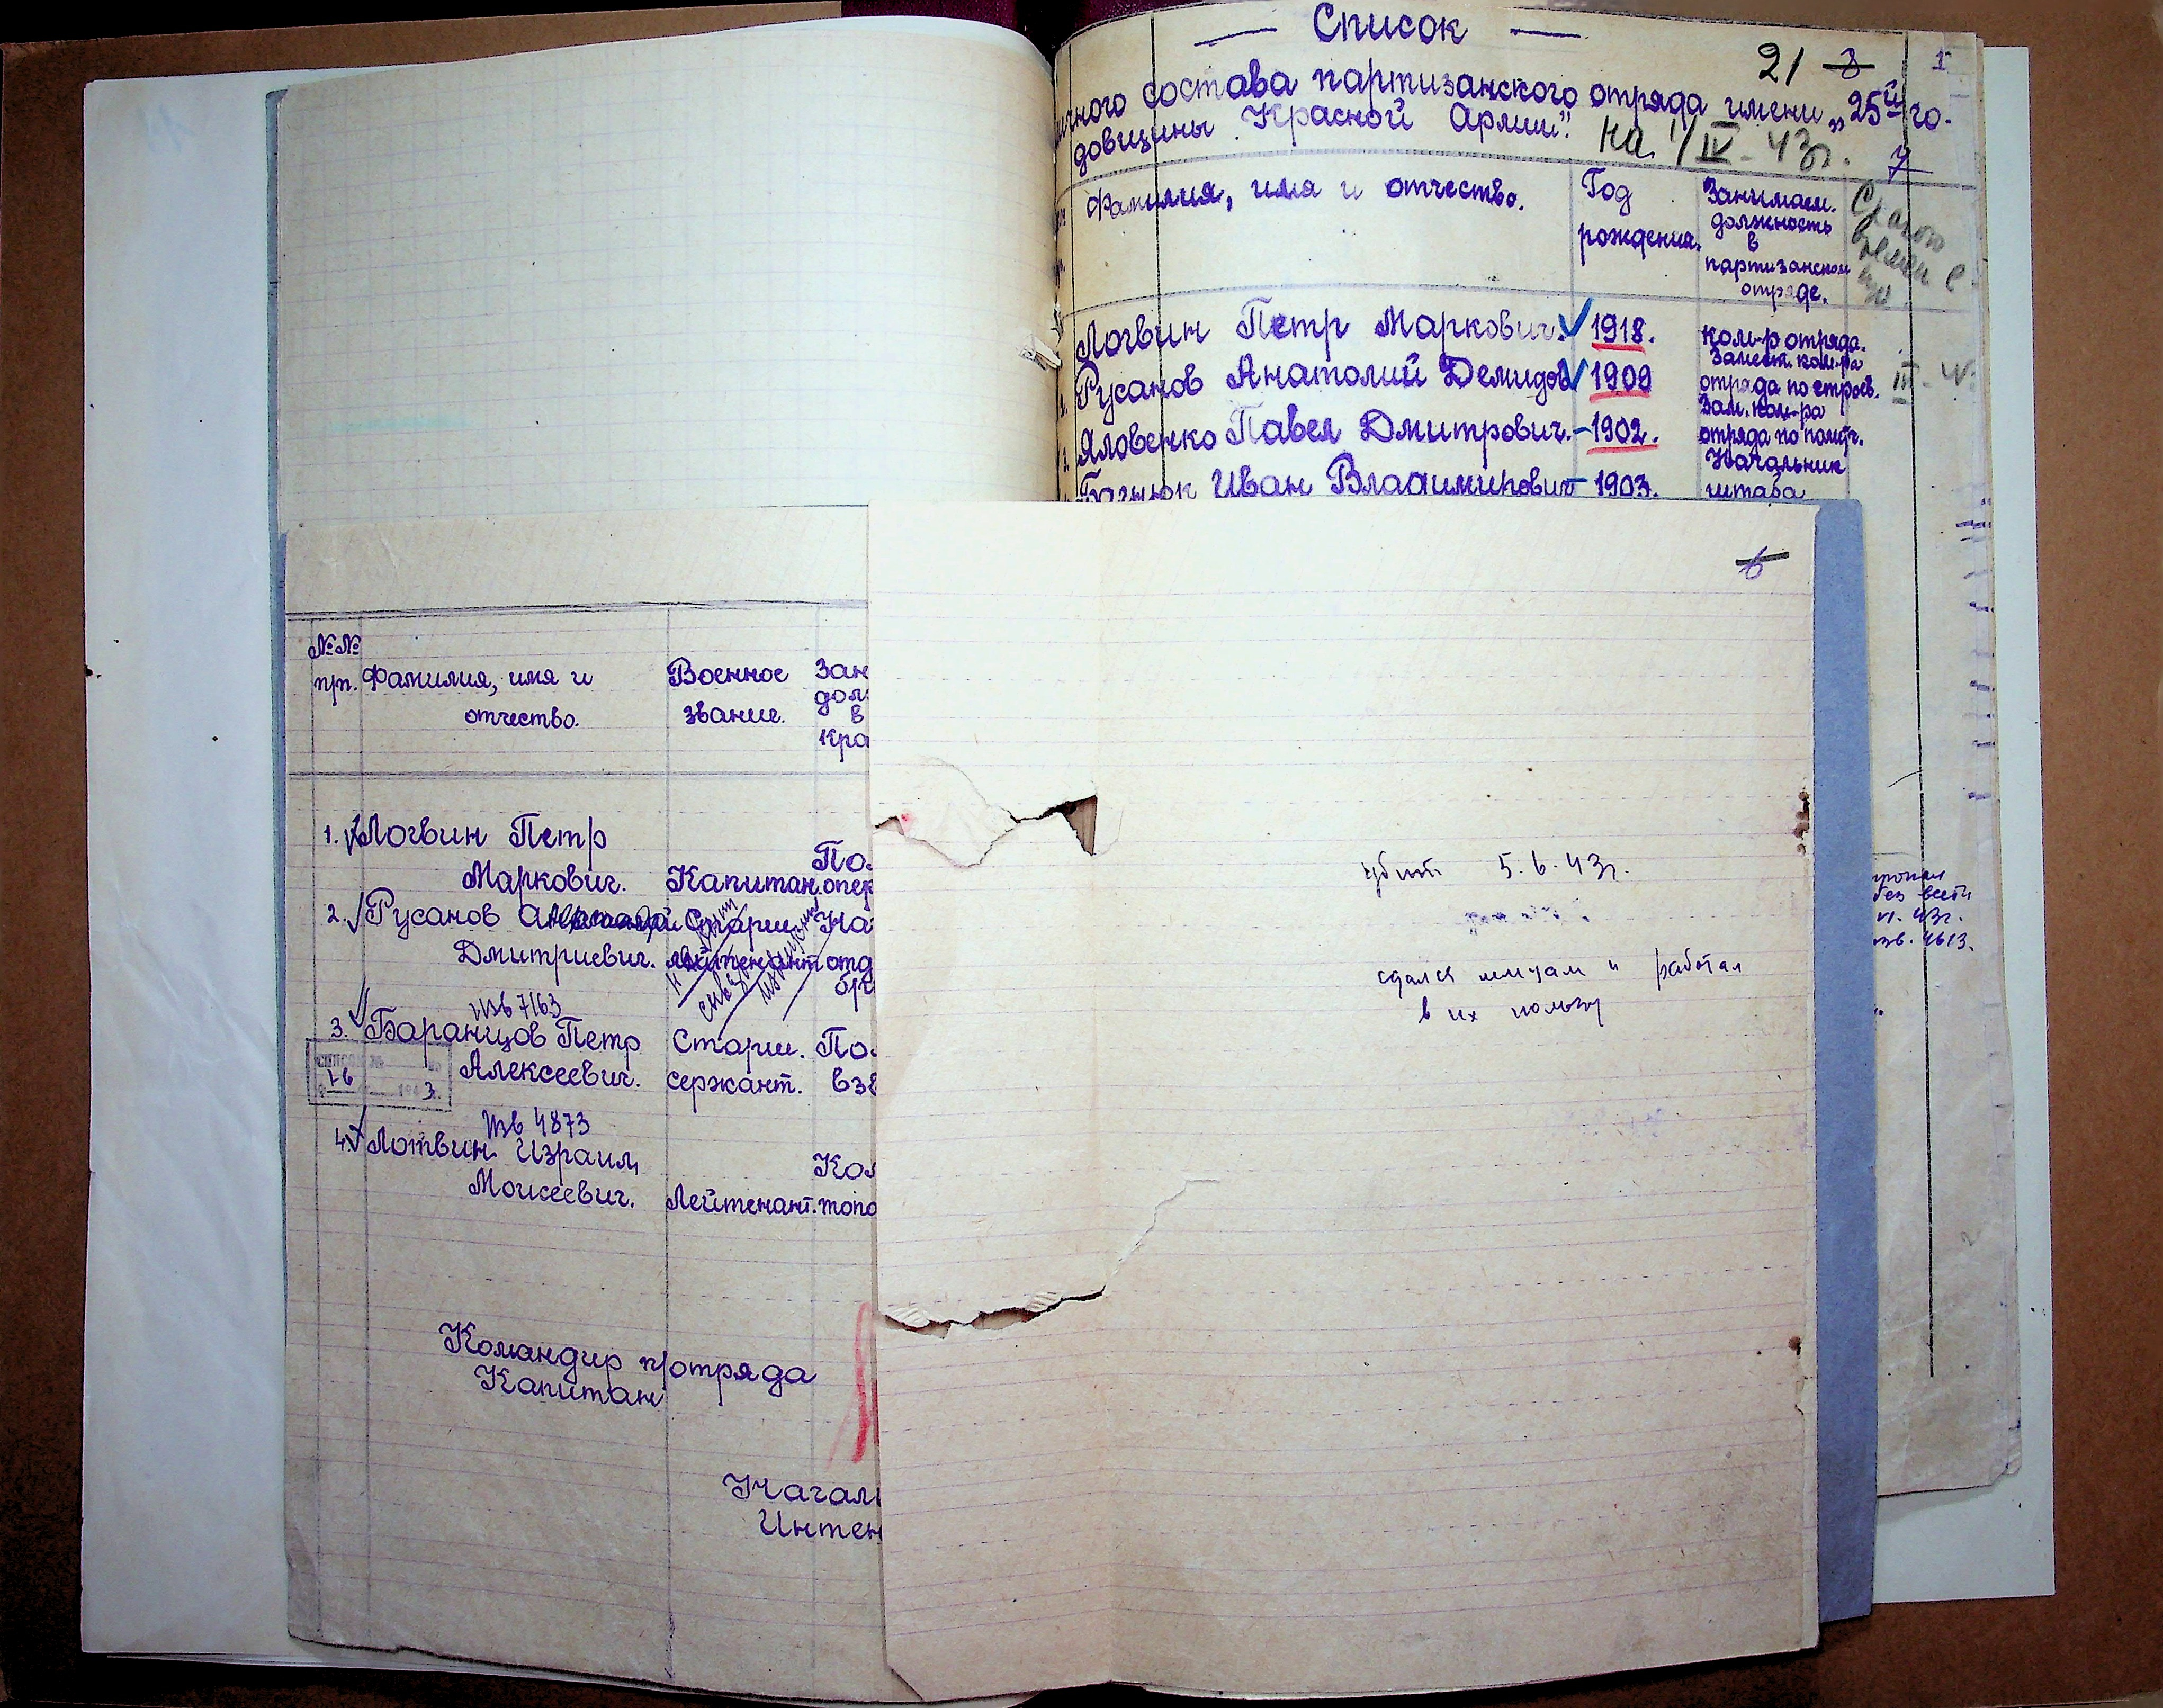 — Список —
21 8 1
личного состава партизанского отряда имени „25й го-
довщины Красной Армии". на 1/IV-43г.
7
Фамилия, имя и отчество.
Год
рождения.
Занимаем.
должность
в
партизанском
отряде.
С какого
времени в
п/о
Логвин Петр Маркович. 1918. Ком-р отряда.
Русанов Анатолий Демидов 1909 Замест. ком-ра
отряда по строев.
Яловенко Павел Дмитрович. - 1902. Зам. ком-ра
отряда по полит.
Иван Владимирович - 1903. Начальник
штаба
6
№№
п/п.
Фамилия, имя и
отчество.
Военное
звание.
Зан
дол
в
Кра
1. Логвин Петр
Маркович. Капитан. По
опер
2. Русанов Старш. На
Дмитриевич. лейтенант отд
Изв 7163
3. Баранцов Петр Старш. По
Алексеевич. сержант. взв
Изв 4873
4. Лотвин Израил Ком
Моисеевич. Лейтенант. топо
Командир п/отряда
Капитан
Начал
Интен
убит 5.6.43г.
сдался немцам и работал
в их пользу
пропал
без вести
VI.43г.
изв. 4613.